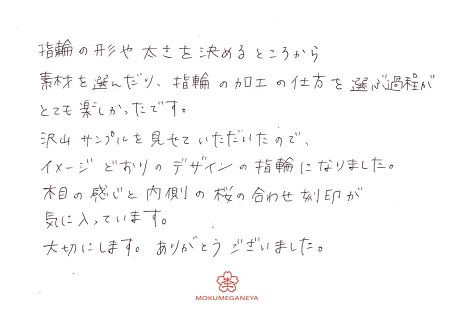 指輪の形や太さを決めるところから
素材を選んだり、指輪の加工の仕方を選ぶ過程が
とても楽しかったです。
沢山サンプルを見せていただいたので、
イメージどおりのデザインの指輪になりました。
木目の感じと内側の桜の合わせ刻印が
気に入っています。
大切にします。ありがとうございました。
MOKUMEGANEYA